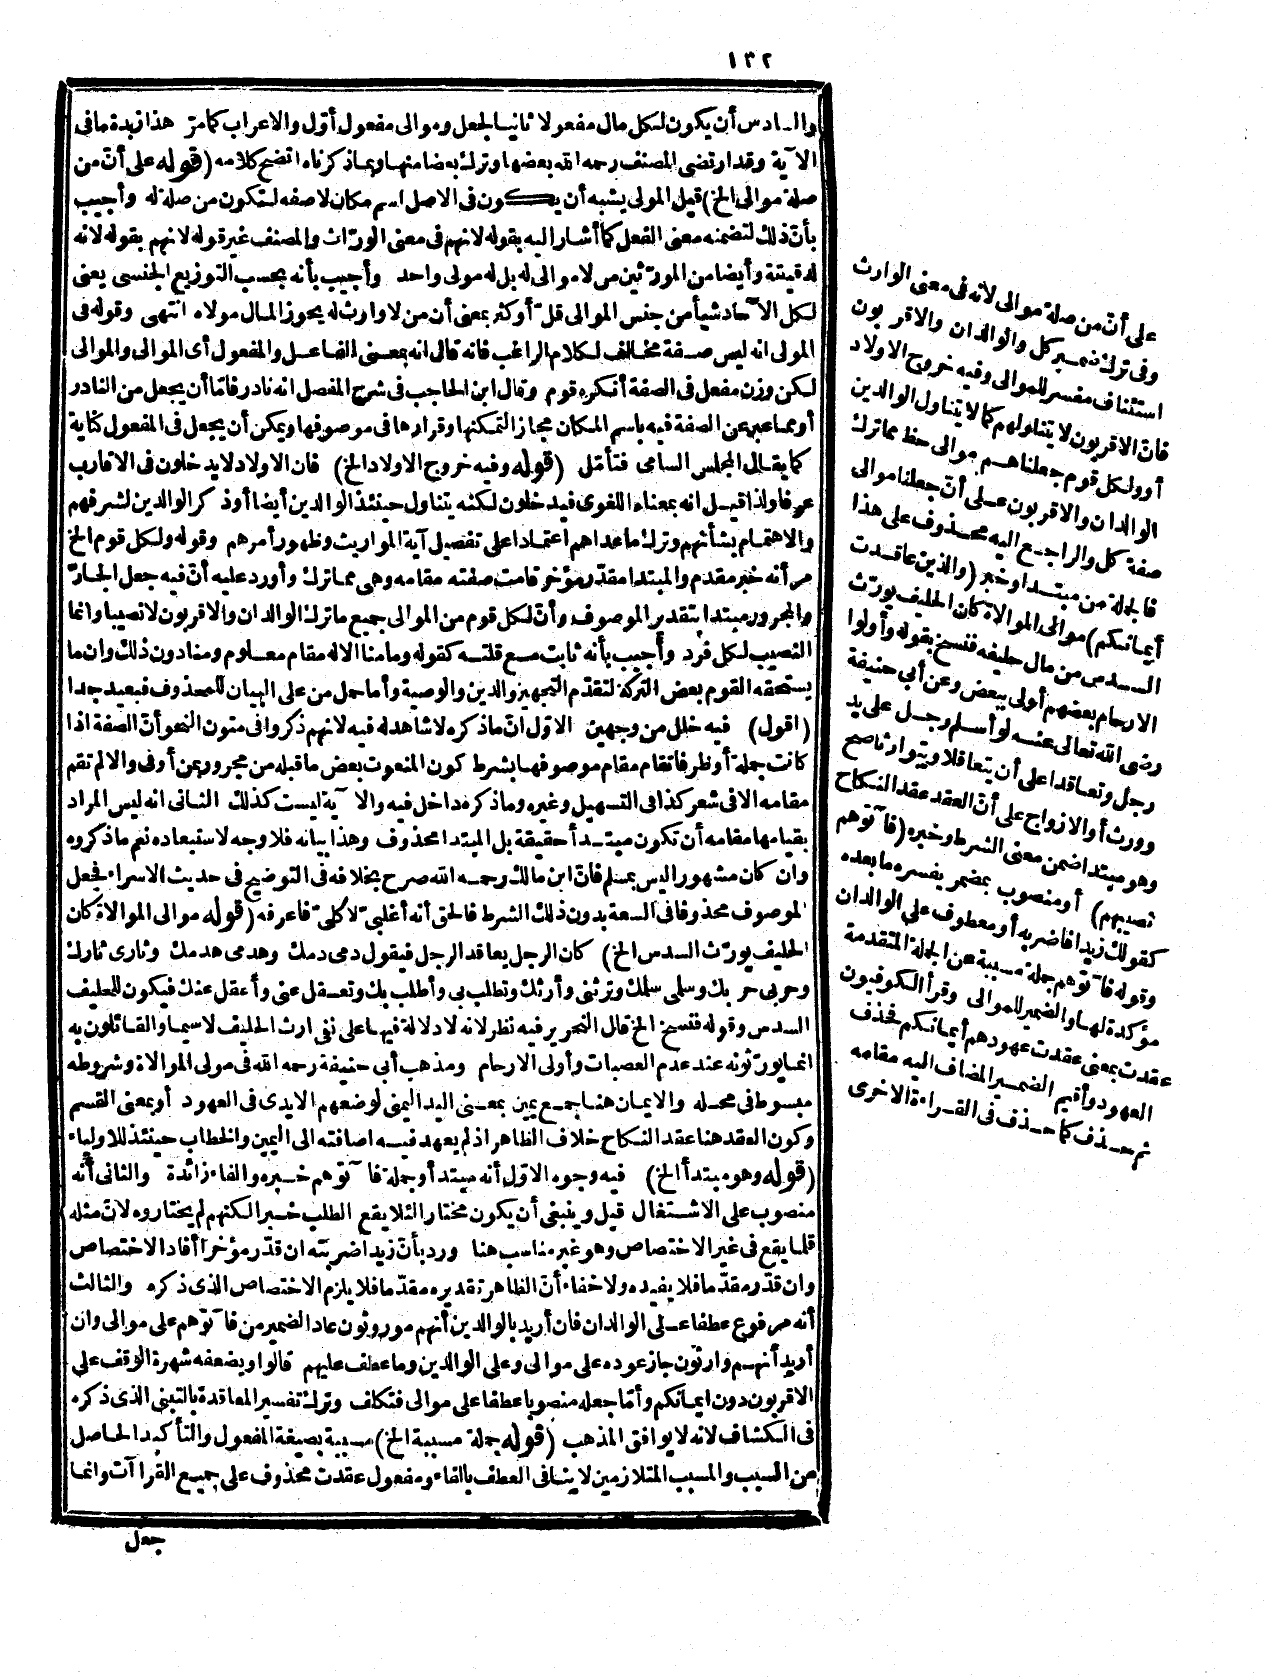 ١٣٢
والسادس أن يكون لكل مال مفعولا ثانيا لجعل وموالى مفعول أوّل والاعراب كما مرّ هذا زبدة ما فى
الآية وقد ارتضى المصنف رحمه الله بعضها وترك بعضا منها وبما ذكرناه اتضح كلامه (قوله على أنّ من
صلة موالى الخ) قيل المولى يشبه أن يكون فى الاصل اسم مكان لا صفة لتكون من صلة له وأجيب
بأنّ ذلك لتضمنه معنى الفعل كما أشار اليه بقوله لانهم فى معنى الورّاث والمصنف غير قوله لانهم بقوله لانه
لدقيقة وأيضا من المورّثين من لا موالى له بل له مولى واحد وأجيب بأنه بحسب التوزيع الجنسى يعنى
لكل الآحاد شيأ من جنس الموالى قلّ أو كثر بمعنى أن من لا وارث له يحوز المال مولاه انتهى وقوله فى
المولى انه ليس صفة مخالف لكلام الراغب فانه قال انه بمعنى الفاعل والمفعول أى الموالى والموالى
لكن وزن مفعل فى الصفة أنكره قوم وقال ابن الحاجب فى شرح المفصل انه نادر فامّا أن يجعل من النادر
أو مما عبر عن الصفة فيه باسم المكان مجازا لتمكنها وقرارها فى موصوفها ويمكن أن يجعل فى المفعول كناية
كما يقال المجلس السامى فتأمّل (قوله وفيه خروج الاولاد الخ) فان الاولاد لا يدخلون فى الاقارب
عرفا ولذا قيل انه بمعناه اللغوى فيدخلون لكنه يتناول حينئذ الوالدين أيضا أو ذكر الوالدين لشرفهم
والاهتمام بشأنهم وترك ما عداهم اعتمادا على تفصيل آية المواريث وظهور أمرهم وقوله ولكل قوم الخ
مر أنه خبر مقدم والمبتدا مقدّر مؤخر قامت صفته مقامه وهى مما ترك وأورد عليه أنّ فيه جعل الجارّ
والمجرور مبتدا بتقدير الموصوف وأنّ لكل قوم من الموالى جميع ما ترك الوالدان والاقربون لا نصيبا وانما
النصيب لكل فرد وأجيب بأنه ثابت مع قلته كقوله وما منا الا له مقام معلوم ومنا دون ذلك وان ما
يستحقه القوم بعض التركة لتقدّم التجهيز والدين والوصية وأما حمل من على البيان للمحذوف فبعيد جدا
(اقول) فيه خلل من وجهين الاوّل انّ ما ذكره لا شاهد له فيه لانهم ذكروا فى متون النحو أنّ الصفة اذا
كانت جملة أو ظرفا تقام مقام موصوفها بشرط كون المنعوت بعض ما قبله من مجرور بمن أو فى والا لم تقم
مقامه الا فى شعر كذا فى التسهيل وغيره وما ذكره داخل فيه والآية ليست كذلك الثانى انه ليس المراد
بقيامها مقامه أن تكون مبتدأ حقيقة بل المبتدا محذوف وهذا بيانه فلا وجه لاستبعاده نعم ما ذكروه
وان كان مشهورا ليس بمسلم فانّ ابن مالك رحمه الله صرح بخلافه فى التوضيح فى حديث الاسراء فجعل
الموصوف محذوفا فى السعة بدون ذلك الشرط فالحق أنه أغلبىّ لا كلىّ فاعرفه (قوله موالى الموالاة كان
الحليف يورّث السدس الخ) كان الرجل يعاقد الرجل فيقول دمى دمك وهدمى هدمك وثارى ثارك
وحربى حربك وسلمى سلمك وترثنى وأرثك وتطلب بى وأطلب بك وتعقل عنى وأعقل عنك فيكون للحليف
السدس وقوله فنسخ الخ قال النحرير فيه نظر لانه لا دلالة فيها على نفى ارث الحليف لا سيما والقائلون به
انما يورّثونه عند عدم العصبات وأولى الارحام ومذهب أبى حنيفة رحمه الله فى مولى الموالاة وشروطه
مبسوط فى محله والايمان هنا جمع يمين بمعنى اليد اليمنى لوضعهم الايدى فى العهود أو بمعنى القسم
وكون العقد هنا عقد النكاح خلاف الظاهر اذ لم يعهد فيه اضافته الى اليمين والخطاب حينئذ للاولياء
(قوله وهو مبتدأ الخ) فيه وجوه الاوّل أنه مبتدأ وجملة فآتوهم خبره والفاء زائدة والثانى أنه
منصوب على الاشتغال قيل وينبغى أن يكون مختارا لئلا يقع الطلب خبرا لكنهم لم يختاروه لانّ مثله
قلما يقع فى غير الاختصاص وهو غير مناسب هنا وردّ بأنّ زيدا ضربته ان قدّر مؤخرا أفاد الاختصاص
وان قدّر مقدّما فلا يفيده ولا خفاء أنّ الظاهر تقديره مقدّما فلا يلزم الاختصاص الذى ذكره والثالث
أنه مرفوع عطفا على الوالدان فان أريد بالوالدين أنهم موروثون عاد الضمير من فآتوهم على موالى وان
أريد أنهم وارثون جاز عوده على موالى وعلى الوالدين وما عطف عليهم قالوا ويضعفه شهرة الوقف على
الاقربون دون ايمانكم وأمّا جعله منصوبا عطفا على موالى فتكلف وترك تفسير المعاقدة بالتبنى الذى ذكره
فى الكشاف لانه لا يوافق المذهب (قوله جملة مسببة الخ) مسببة بصيغة المفعول والتأكيد الحاصل
من السبب والمسبب المتلازمين لا ينافى العطف بالفاء ومفعول عقدت محذوف على جميع القرآآت وانما
جعل
على أنّ من صلة موالى لانه فى معنى الوارث
وفى ترك ضمير كل والوالدان والاقربون
استئناف مفسر للموالى وفيه خروج الاولاد
فانّ الاقربون لا يتناولهم كما لا يتناول الوالدين
أو ولكل قوم جعلناهم موالى حظ مما ترك
الوالدان والاقربون على أنّ جعلنا موالى
صفة كل والراجع اليه محذوف على هذا
فالجملة من مبتدا وخبر (والذين عاقدت
أيمانكم) موالى الموالاة كان الحليف يورّث
السدس من مال حليفه فنسخ بقوله وأولوا
الارحام بعضهم أولى ببعض وعن أبى حنيفة
رضى الله تعالى عنه لو أسلم رجل على يد
رجل وتعاقدا على أن يتعاقلا ويتوارثا صح
وورث أو الازواج على أنّ العقد عقد النكاح
وهو مبتدا ضمن معنى الشرط وخبره (فآتوهم
نصيبهم) أو منصوب بمضمر يفسره ما بعده
كقولك زيدا فاضربه أو معطوف على الوالدان
وقوله فآتوهم جملة مسببة عن الجملة المتقدمة
مؤكدة لها والضمير للموالى وقرأ الكوفيون
عقدت بمعنى عقدت عهودهم أيمانكم فحذف
العهود وأقيم الضمير المضاف اليه مقامه
ثم حذف كما حذف فى القراءة الاخرى